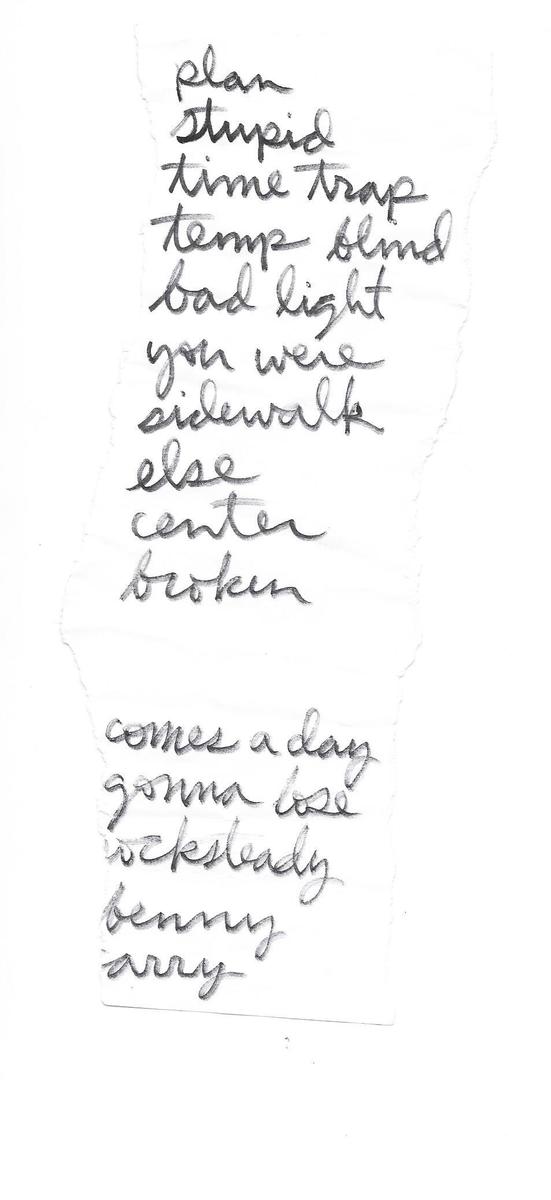 plan
stupid
time trap
temp blind
bad light
you were
sidewalk
else
center
broken
comes a day
gonna lose
rocksteady
benny
arry